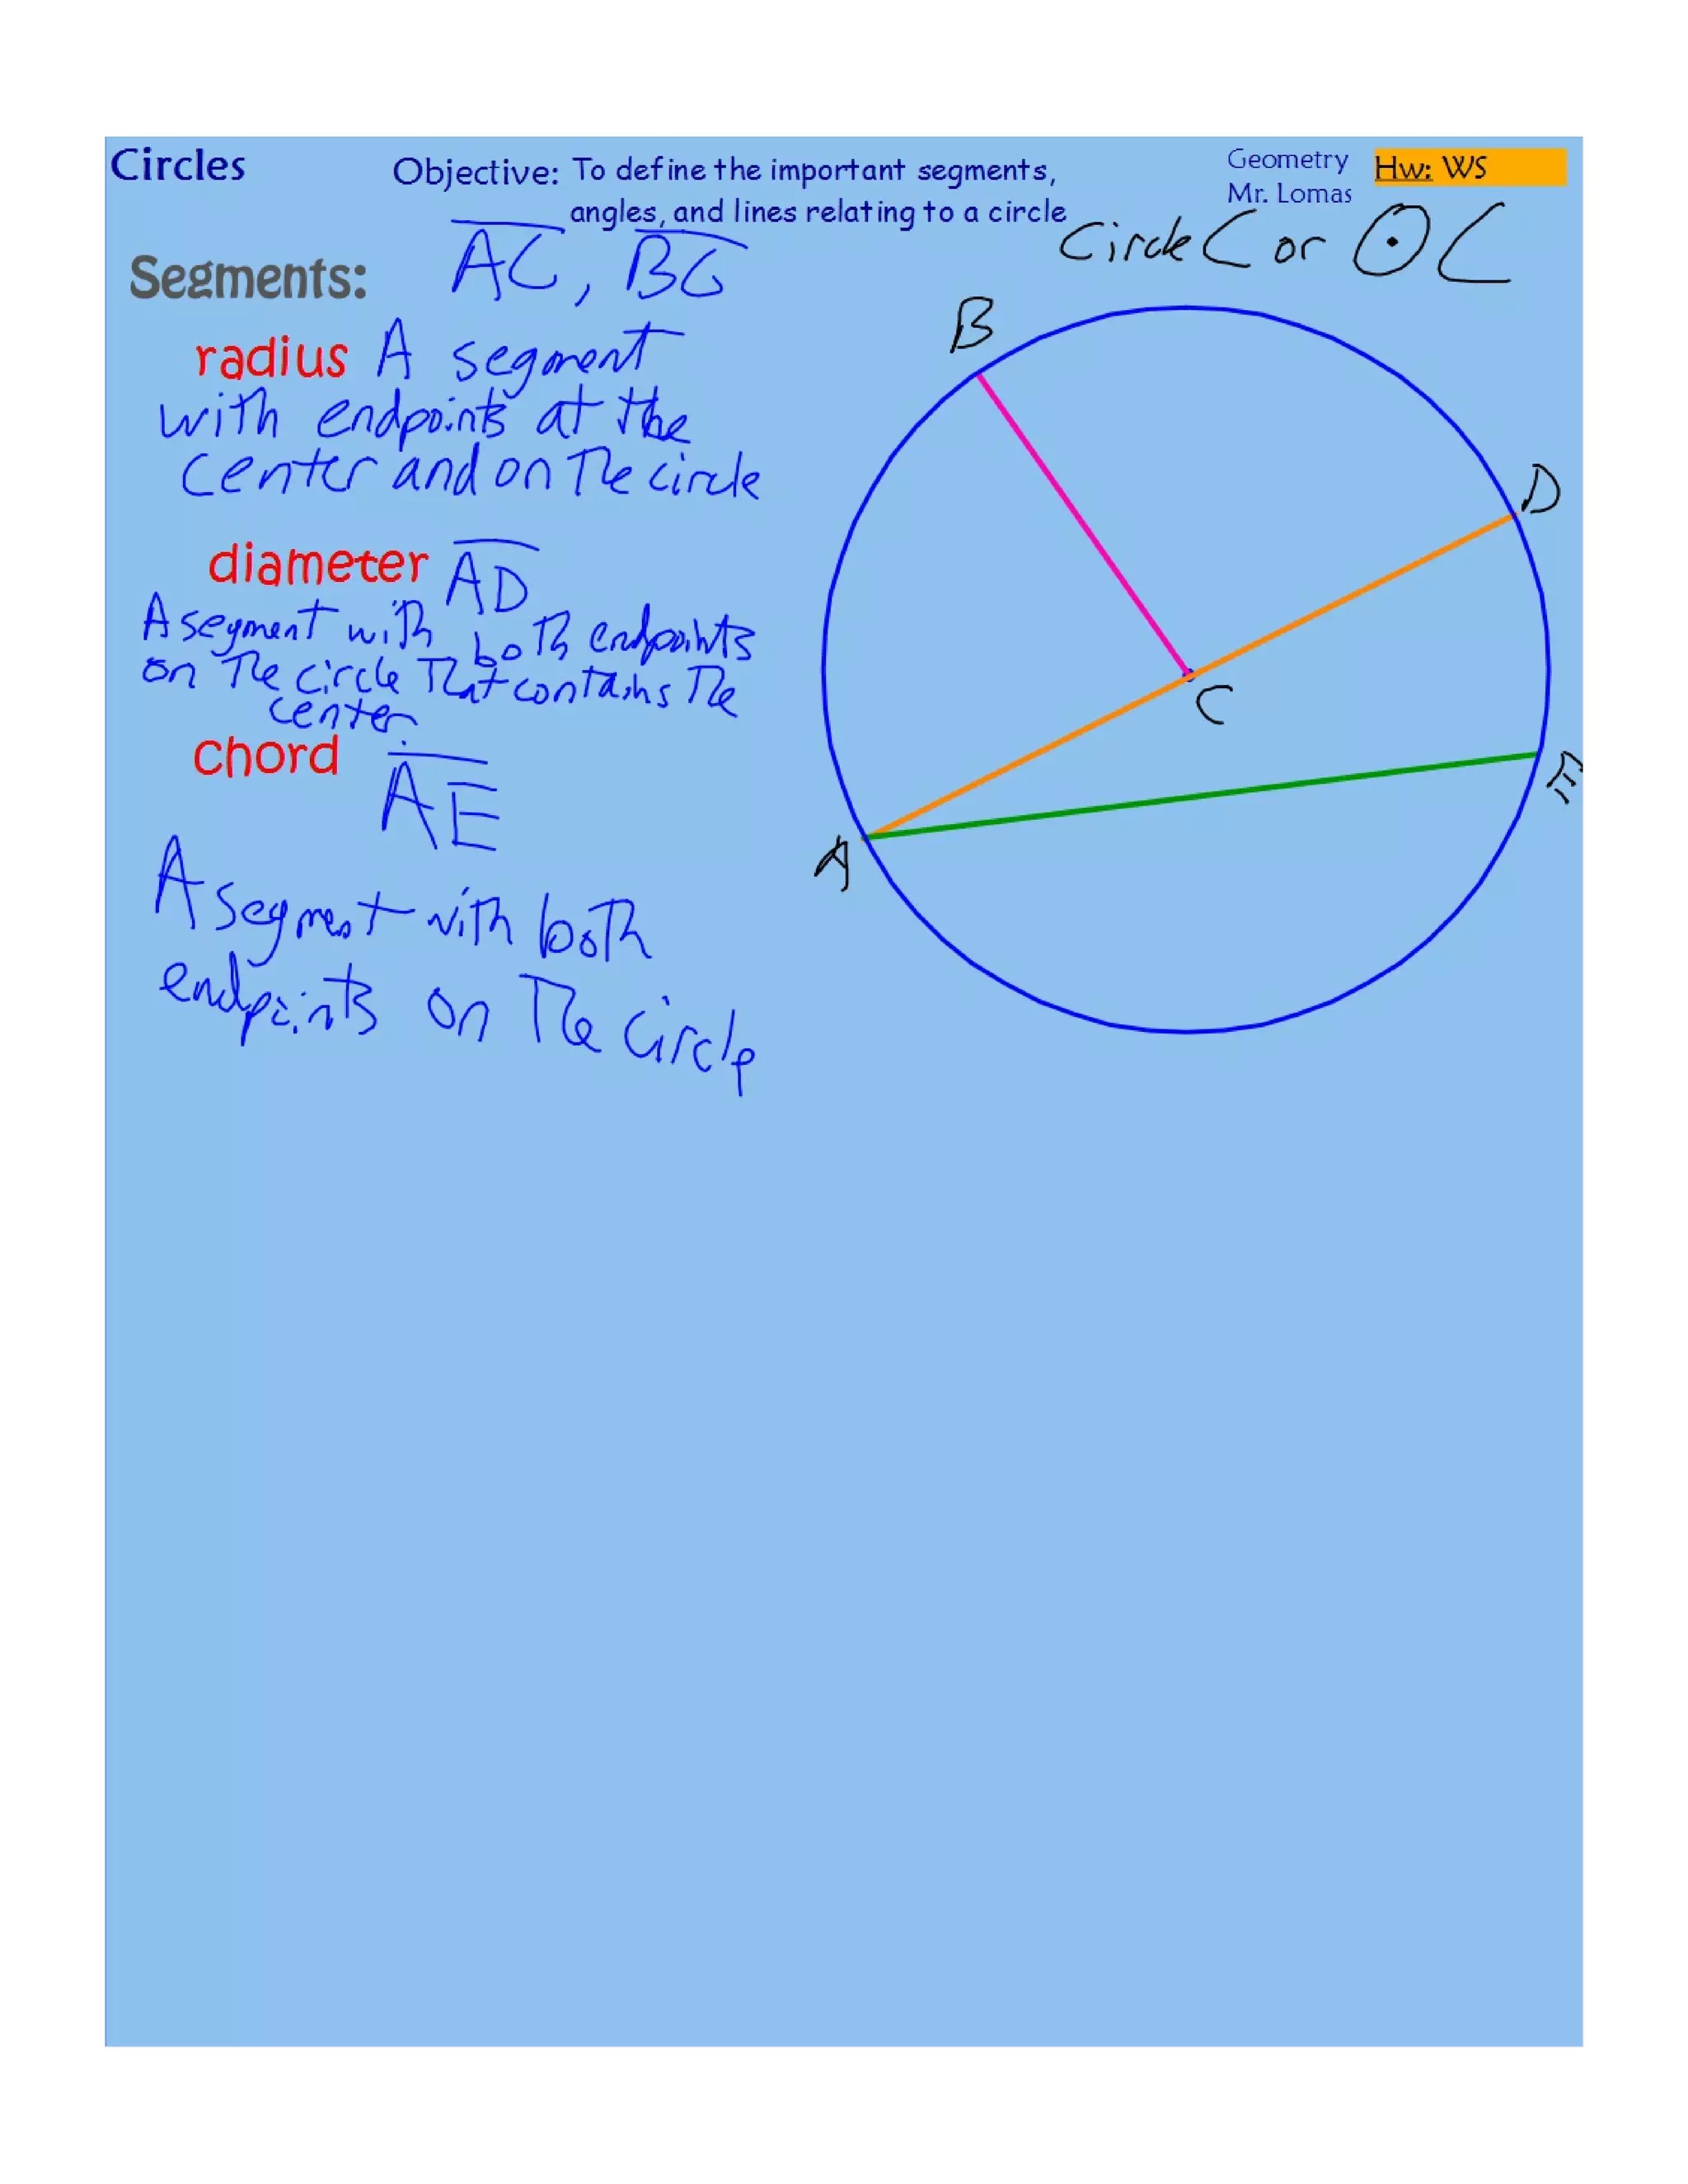 Circles
Objective: To define the important segments,
angles, and lines relating to a circle
Geometry
Mr. Lomas
Hw: WS
Circle C or ⊙ C
Segments: AC, BC
radius A segment
with endpoints at the
center and on the circle
diameter AD
A segment with both endpoints
on the circle that contains the
center.
chord AE
A segment with both
endpoints on the circle
B
D
C
E
A